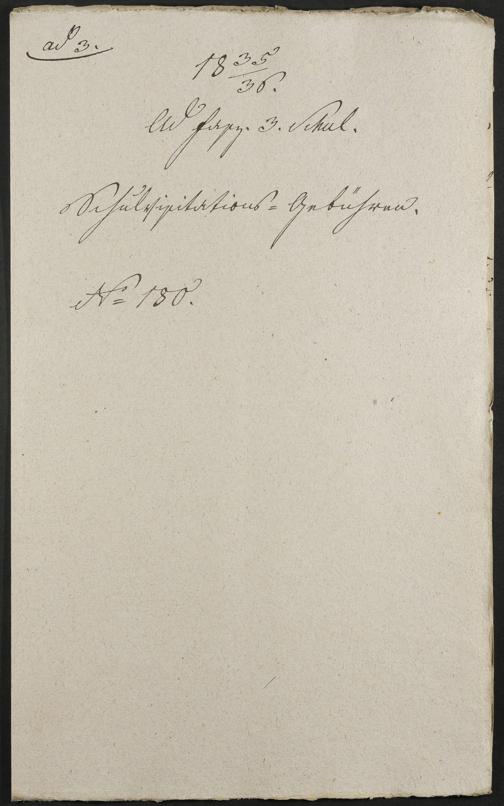 ad 3.
18 35/36.
Ad fasz. 3. Schul.
Schulvisitations= Gebühren.
No= 180.